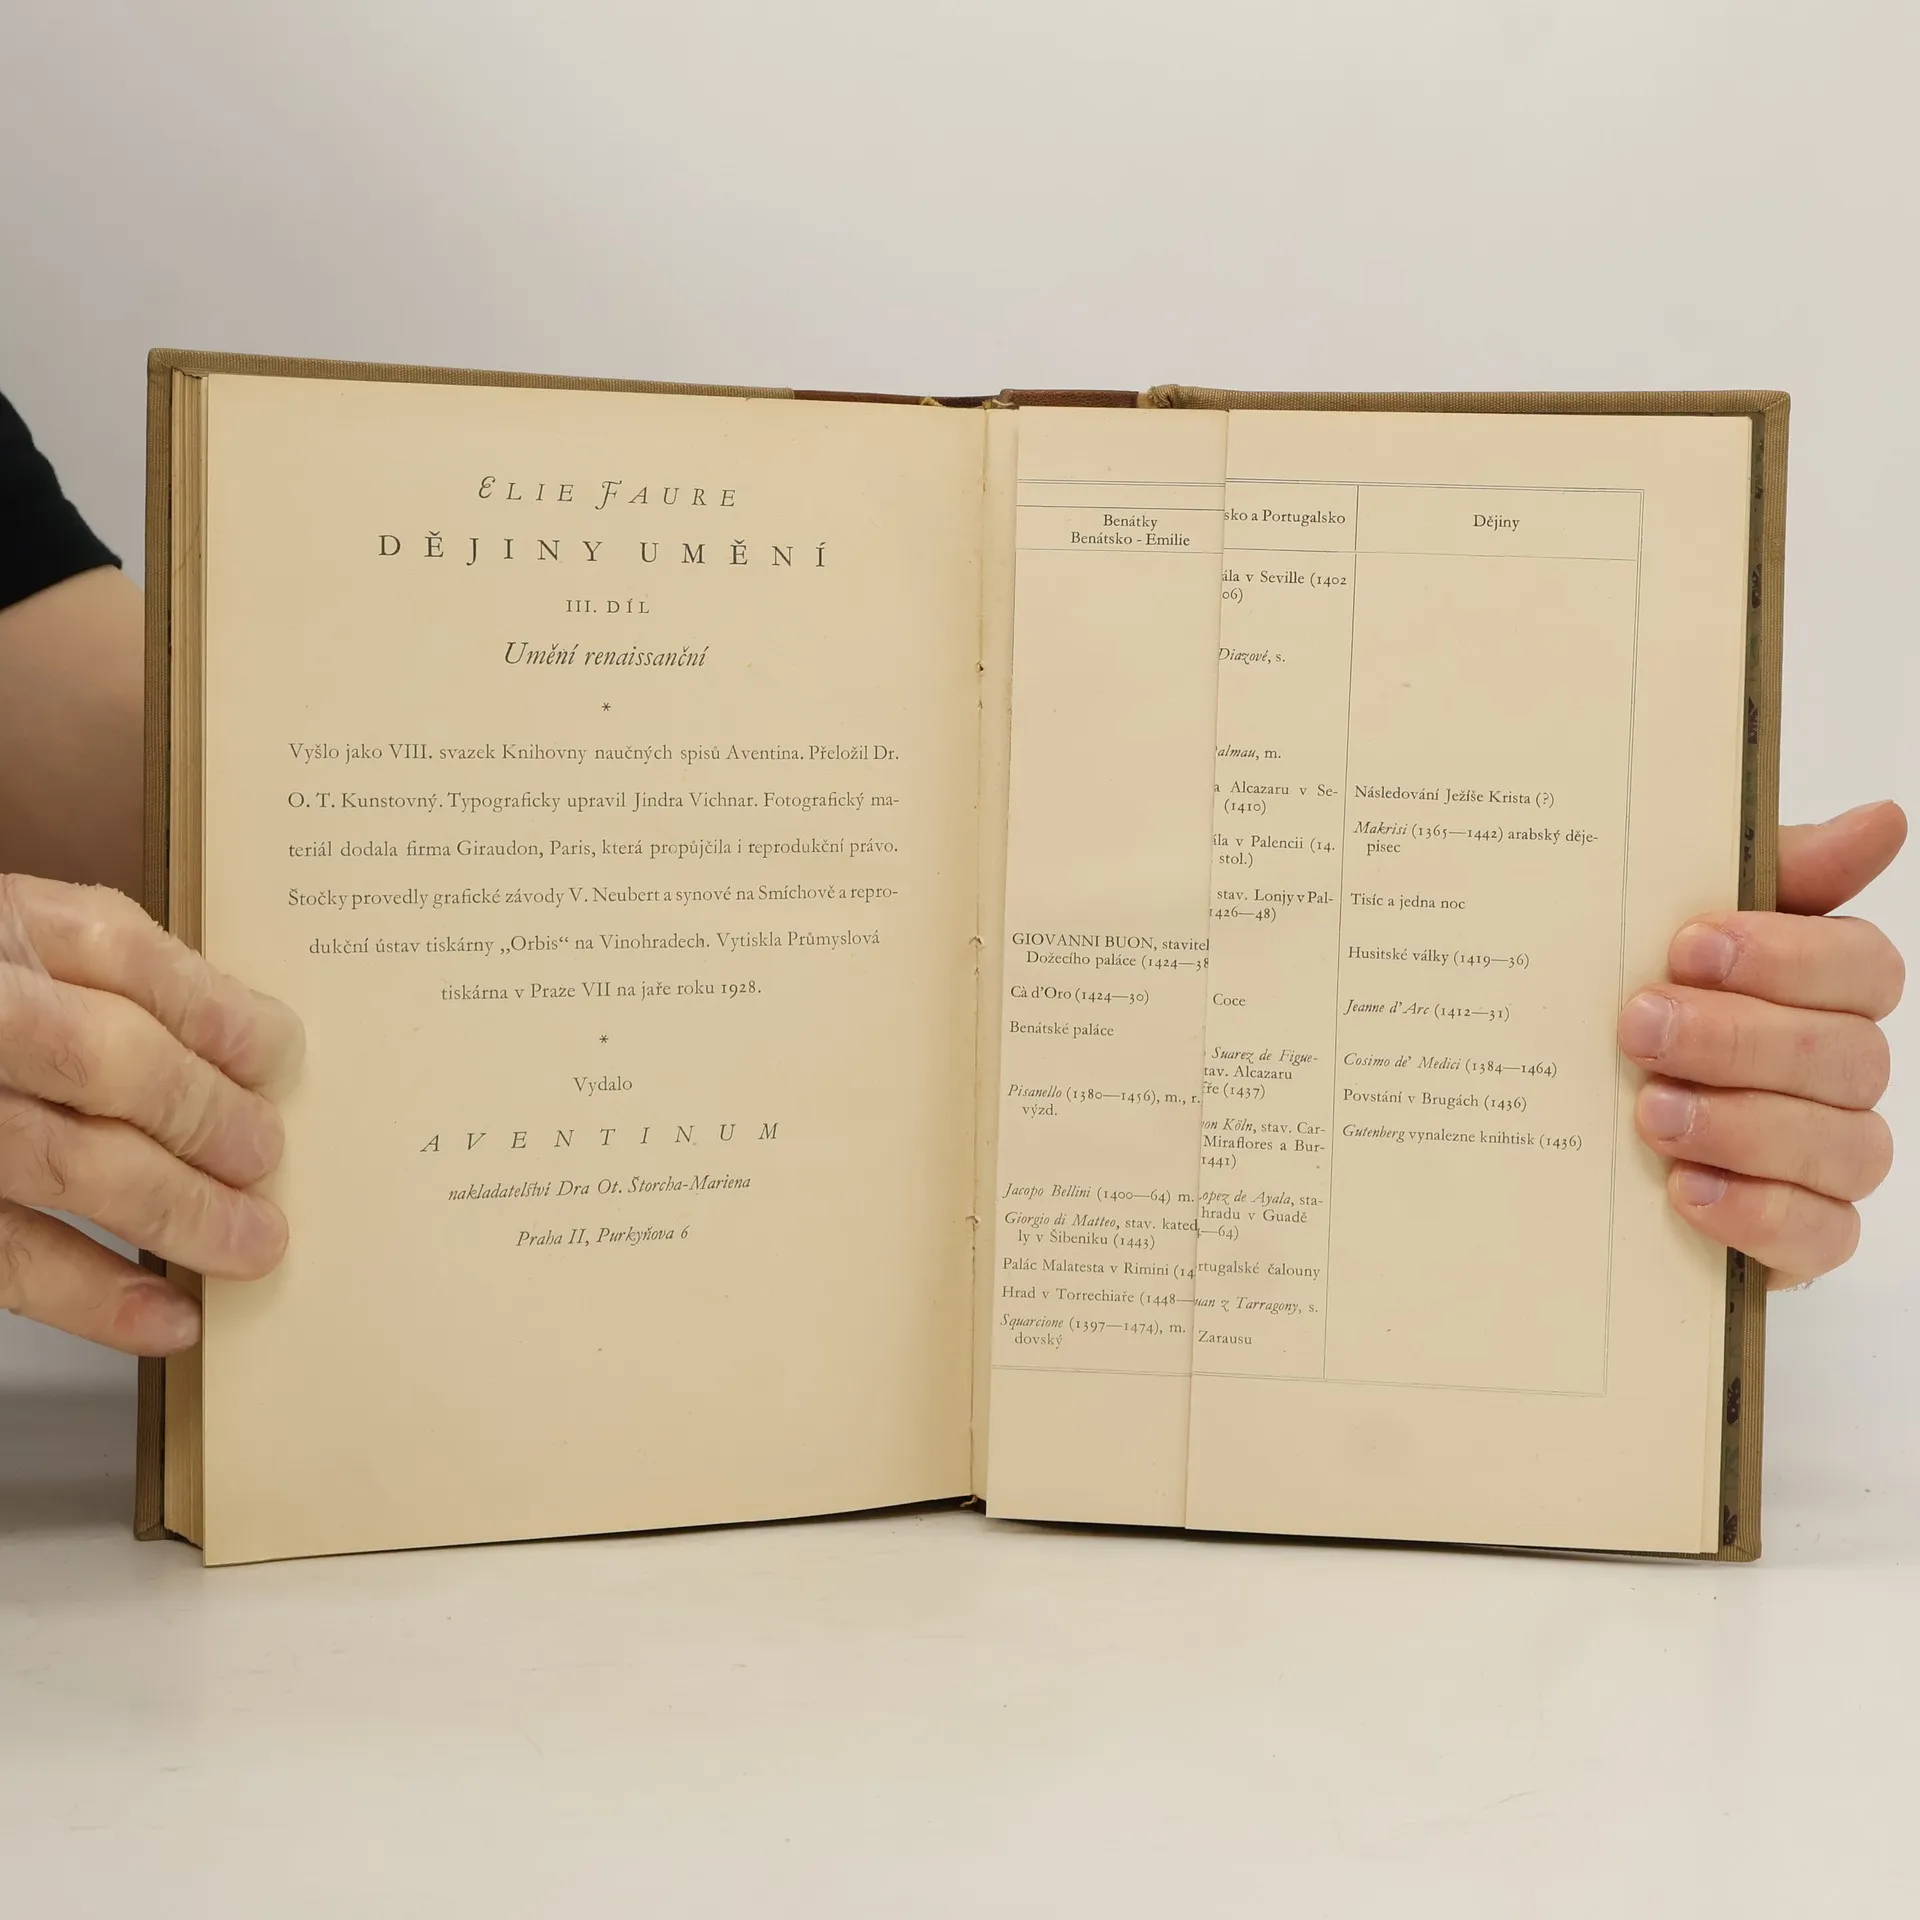 ELIE FAURE
DĚJINY UMĚNÍ
III. DÍL
Umění renaissanční
*
Vyšlo jako VIII. svazek Knihovny naučných spisů Aventina. Přeložil Dr.
O. T. Kunstovný. Typograficky upravil Jindra Vichnar. Fotografický ma-
teriál dodala firma Giraudon, Paris, která propůjčila i reprodukční právo.
Štočky provedly grafické závody V. Neubert a synové na Smíchově a repro-
dukční ústav tiskárny „Orbis“ na Vinohradech. Vytiskla Průmyslová
tiskárna v Praze VII na jaře roku 1928.
*
Vydalo
AVENTINUM
nakladatelství Dra Ot. Štorcha-Mariena
Praha II, Purkyňova 6
Benátky
Benátsko - Emilie
GIOVANNI BUON, stavitel
Dožecího paláce (1424—38
Cà d’Oro (1424—30)
Benátské paláce
Pisanello (1380—1456), m., r.
výzd.
Jacopo Bellini (1400—64) m.
Giorgio di Matteo, stav. kated
ly v Šibeniku (1443)
Palác Malatesta v Rimini (14
Hrad v Torrechiaře (1448—
Squarcione (1397—1474), m.
dovský
sko a Portugalsko
ála v Seville (1402
06)
Diazové, s.
almau, m.
a Alcazaru v Se-
(1410)
ála v Palencii (14.
stol.)
stav. Lonjy v Pal-
1426—48)
Coce
Suarez de Figue-
tav. Alcazaru
fře (1437)
on Köln, stav. Car-
Miraflores a Bur-
1441)
opez de Ayala, sta-
hradu v Guadě
—64)
rtugalské čalouny
uan z Tarragony, s.
Zarausu
Dějiny
Následování Ježíše Krista (?)
Makrisi (1365—1442) arabský děje-
pisec
Tisíc a jedna noc
Husitské války (1419—36)
Jeanne d’Arc (1412—31)
Cosimo de’ Medici (1384—1464)
Povstání v Brugách (1436)
Gutenberg vynalezne knihtisk (1436)